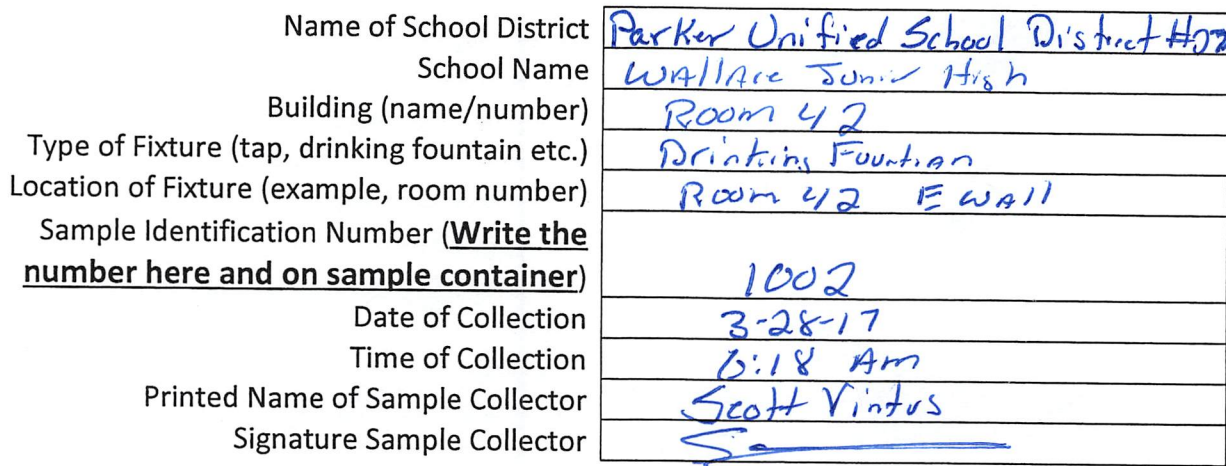 Name of School District Parker Unified School District
School Name Wallace Junior High
Building (name/number) Room 42
Type of Fixture (tap, drinking fountain etc.) Drinking Fountian
Location of Fixture (example, room number) Room 42 E Wall
Sample Identification Number (Write the
number here and on sample container) 1002
Date of Collection 3-28-17
Time of Collection 6:18 Am
Printed Name of Sample Collector Scott Vintus
Signature Sample Collector